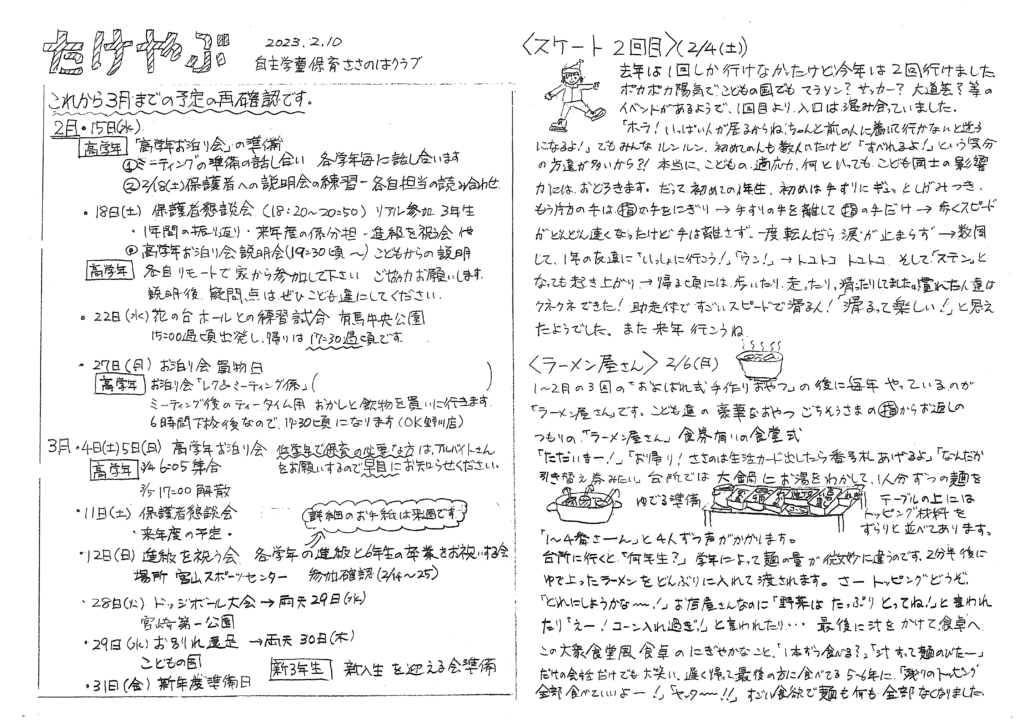 たけやぶ
2023.2.10
自主学童保育ささのはクラブ
これから3月までの予定の再確認です。
2月・15日(水)
高学年 「高学年お泊り会」の準備
①ミーティングの準備の話し合い 各学年毎に話し合います
②2/18(土)保護者への説明会の練習ー各自担当の読み合わせ
・18日(土) 保護者懇談会 (18:20~20:50) リアル参加 3年生
・1年間の振り返り・来年度の係分担・進級を祝う会 他
高学年お泊り会説明会(19:30頃~) こどもからの説明
高学年 各自リモートで家から参加して下さい ご協力お願いします。
説明後、疑問、点はぜひこども達にしてください。
・22日(水) 花の台ホールとの練習試合 有馬中央公園
15:00過ぎ頃出発し、帰りは17:30過ぎ頃です。
・27日(月) お泊り会 買物日
高学年 お泊り会「レク&ミーティング係」( )
ミーティング後のティータイム用 おかしと飲物を買いに行きます。
6時間下校後なので、17:30頃になります(OK 野川店)
3月・4日(土)5日(日) 高学年お泊り会 低学年で保育の必要な方は、アルバイトさん
高学年 3/4 6:05 集合 をお願いするので早目にお知らせください。
3/5 17:00 解散
・11日(土) 保護者懇談会
・来年度の予定・
詳細のお手紙は来週です
・12日(日) 進級を祝う会 各学年の進級と6年生の卒業をお祝いする会
場所 宮山スポーツセンター 参加確認(2/14~25)
・28日(火) ドッジボール大会→雨天29日(水)
宮崎第一公園
・29日(水) お別れ遠足 →雨天30日(木)
こどもの国
新3年生 新入生を迎える会準備
・31日(金) 新年度準備日
〈スケート 2回目〉(2/4(土))
去年は1回しか行けなかったけど今年は2回行けました
ポカポカ陽気でこどもの国でも マラソン?サッカー?大道芸?等の
イベントがあるようで、1回目より、入口は混み合っていました。
「ホラ!いっぱい人が居るからね、ちゃんと前の人に着いて行かないと迷子
になるよ!」でもみんなルンルン、初めての人も数人いたけど「すべれるよ!」という気分
の方達が多いから?!本当に、こどもの、適応力、何といっても、こども同士の影響
力には、おどろきます。だって初めての1年生、初めは手すりにギュッとしがみつき、
もう片方の手は、指の手をにぎり→手すりの手を離して指の手だけ→歩くスピード
がどんどん速くなったけど手は離さず、一度転んだら涙が止まらず→数周
して、1年の友達に「いっしょに行こう!」「ウン!」→トコトコ トコトコ そして「ステン」と
なっても起き上がり→帰る頃には、歩いたり、走ったり、滑ったりしてました。慣れた人達は
クネクネできた!助走付ですごいスピードで滑るよ!「滑るって楽しい!」と思え
たようでした。また来年 行こうね
〈ラーメン屋さん〉2/6(月)
1~2月の3回の"およばれ式手作りおやつ"の後に毎年やっているのが
「ラーメン屋さん」です。こども達の豪華なおやつ ごちそうさまの指からお返しの
つもりの、「ラーメン屋さん」食券有りの食堂式
「ただいまー!」「お帰り!ささのは生活カード出したら番号札あげるよ」「なんだか
引き替え券みたい」台所では大鍋にお湯をわかして、1人分ずつの麺を
ゆでる準備 テーブルの上には
トッピング材料を
ずらりと並べてあります。
「1~4番さーん」と4人ずつ声がかかります。
台所に行くと、「何年生?」学年によって麺の量が微妙に違うのです。2分半後に
ゆで上ったラーメンをどんぶりに入れて渡されます。さートッピングどうぞ。
「どれにしようかな~!」お店屋さんなのに「野菜はたっぷりとってね!」と言われ
たり「えー!コーン入れ過ぎ!」と言われたり・・・ 最後に汁をかけて食卓へ
この大衆食堂風食卓のにぎやかなこと、「1本ずつ食べる?」「汁すって麺のびた~」
だけの会話だけでも大笑い、遅く帰って最後の方に食べてる5~6年に、「残りのトッピング
全部食べていいよー!」「ヤッター!!」すごい食欲で麺も何も全部なくなりました。